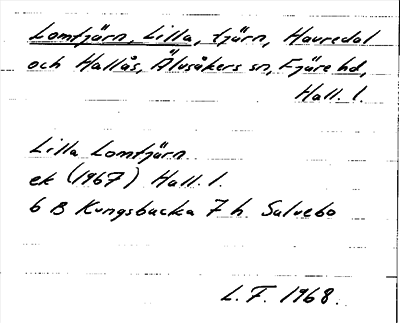 Lomtjärn, Lilla, tjärn, Havredal
och Hallås, Älvsåkers sn, Fjäre hd,
Hall. l.
Lilla Lomtjärn
ek (1967) Hall. l.
6 B Kungsbacka 7 h. Salvebo
L. F. 1968.